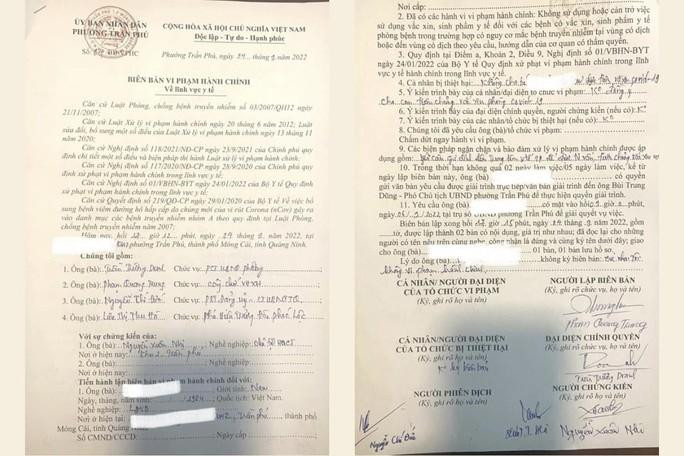 ỦY BAN NHÂN DÂN
PHƯỜNG TRẦN PHÚ
CỘNG HÒA XÃ HỘI CHỦ NGHĨA VIỆT NAM
Độc lập - Tự do - Hạnh phúc
Phường Trần Phú, ngày 29 tháng 9 năm 2022
BIÊN BẢN VI PHẠM HÀNH CHÍNH
Về lĩnh vực y tế
Căn cứ Luật Phòng, chống bệnh truyền nhiễm số 03/2007/QH12 ngày
21/11/2007;
Căn cứ Luật Xử lý vi phạm hành chính ngày 20 tháng 6 năm 2012; Luật
sửa đổi, bổ sung một số điều của Luật Xử lý vi phạm hành chính ngày 13 tháng 11
năm 2020;
Căn cứ Nghị định số 118/2021/NĐ-CP ngày 23/9/2021 của Chính phủ quy
định chi tiết một số điều và biện pháp thi hành Luật Xử lý vi phạm hành chính;
Căn cứ Nghị định số 117/2020/NĐ-CP ngày 28/9/2020 của Chính phủ quy
định xử phạt vi phạm hành chính trong lĩnh vực y tế;
Căn cứ Nghị định số 01/VBHN-BYT ngày 24/01/2022 của Bộ Y tế Quy định
xử phạt vi phạm hành chính trong lĩnh vực y tế;
Căn cứ Quyết định số 219/QĐ-CP ngày 29/01/2020 của Bộ Y tế Về việc bổ
sung bệnh viêm đường hô hấp cấp do chủng mới của vi rút Corona (nCov) gây ra
vào danh mục các bệnh truyền nhiễm nhóm A theo quy định tại Luật Phòng,
chống bệnh truyền nhiễm năm 2007;
Hôm nay, hồi phút, ngày 29 tháng 9 năm 2022, tại
Trần Phú, thành phố Móng Cái, tỉnh Quảng Ninh.
Chúng tôi gồm:
1. Ông (bà): Chức vụ: PCT UBND phường
2. Ông (bà): Phạm Quang Trung Chức vụ: công chức
3. Ông (bà): Nguyễn Chức vụ:
4. Ông (bà): Chức vụ: Phó
Với sự chứng kiến của:
1. Ông (bà): Nguyễn Xuân Nghề nghiệp:
Nơi ở hiện nay: Khu 2 Trần Phú
2. Ông (bà): Nghề nghiệp:
Nơi ở hiện nay:
Tiến hành lập biên bản vi phạm hành chính đối với:
1. Ông (bà): Giới tính: Nam
Ngày, tháng, năm sinh: 1984 Quốc tịch: Việt Nam.
Nghề nghiệp: LĐTD
Nơi ở hiện tại: Trần Phú, thành phố
Móng Cái, tỉnh Quảng
Số CMND/CCCD: Ngày cấp
Nơi cấp:
2. Đã có các hành vi vi phạm hành chính: Không sử dụng hoặc cản trở việc
sử dụng vắc xin, sinh phẩm y tế đối với các bệnh có vắc xin, sinh phẩm y tế
phòng bệnh trong trường hợp có nguy cơ mắc bệnh truyền nhiễm tại vùng có dịch
hoặc đến vùng có dịch theo yêu cầu, hướng dẫn của cơ quan có thẩm quyền.
3. Quy định tại Điểm a, Khoản 2, Điều 9, Nghị định số 01/VBHN-BYT
ngày 24/01/2022 của Bộ Y tế Quy định xử phạt vi phạm hành chính trong lĩnh vực
y tế hành chính trong lĩnh vực y tế.
4. Cá nhân bị thiệt hại: Không cho bé
5. Ý kiến trình bày của cá nhân/đại diện tổ chức vi phạm: không đồng ý
cho con tiêm chủng vắc xin phòng covid 19
6. Ý kiến trình bày của đại diện chính quyền, người chứng kiến (nếu có):
7. Ý kiến trình bày của cá nhân/tổ chức bị thiệt hại (nếu có):
8. Chúng tôi đã yêu cầu ông (bà)/tổ chức vi phạm:
Chấm dứt ngay hành vi vi phạm.
9. Các biện pháp ngăn chặn và bảo đảm xử lý vi phạm hành chính được áp
dụng gồm:
10. Trong thời hạn không quá 02 ngày làm việc/05 ngày làm việc, kể từ
ngày lập biên bản này, ông (bà) có quyền
gửi văn bản yêu cầu được giải trình trực tiếp/văn bản giải trình đến ông Bùi Trung
Dũng - Phó Chủ tịch UBND phường Trần Phú để thực hiện quyền giải trình.
11. Yêu cầu ông (bà) có mặt vào hồi phút,
ngày 2022 tại trụ sở UBND phường Trần Phú để giải quyết vụ việc.
Biên bản lập xong hồi 15 phút, ngày 29 tháng 9 năm 2022, gồm
tờ, được lập thành 02 bản có nội dung, giá trị như nhau; đã đọc lại cho những
người có tên nêu trên cùng nghe, công nhận là đúng và cùng ký tên dưới đây; giao
cho ông (bà) 01 bản, 01 bản lưu hồ sơ.
Lý do ông (bà) không ký biên bản:
không vi phạm hành chính
CÁ NHÂN/NGƯỜI ĐẠI DIỆN
CỦA TỔ CHỨC VI PHẠM
(Ký, ghi rõ họ và tên)
NGƯỜI LẬP BIÊN BẢN
(Ký, ghi rõ chức vụ, họ và tên)
Phạm Quang Trung
CÁ NHÂN/NGƯỜI ĐẠI DIỆN
CỦA TỔ CHỨC BỊ THIỆT HẠI
(Ký, ghi rõ họ và tên)
ĐẠI DIỆN CHÍNH QUYỀN
(Ký, ghi rõ chức vụ, họ và tên)
NGƯỜI PHIÊN DỊCH
NGƯỜI CHỨNG KIẾN
(Ký, ghi rõ họ và tên)
Nguyễn Xuân